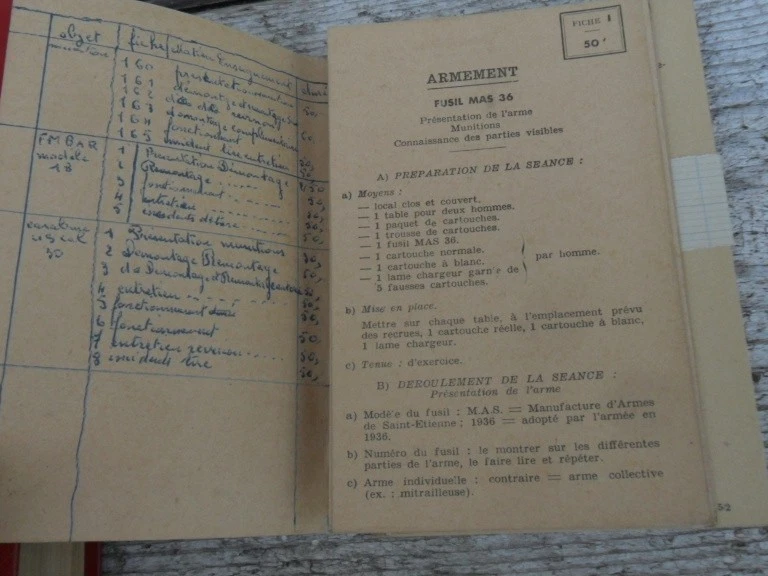 objet fiche durée
160
161
162
163
164 fonctionnement
165 incident tire entretien
FM BAR 1 Présentation Démontage
modele 2 Remontage
18 3 fonctionnement
4 entretien
5 incidents de tire 50,
carabine 1 Présentation munitions 50,
US cal 2 Démontage Remontage
30 3
4 entretien
5 fonctionnement
6 fonctionnement
7 entretien revision 50,
8 incidents tire 50,
FICHE 1
50'
ARMEMENT
FUSIL MAS 36
Présentation de l'arme
Munitions
Connaissance des parties visibles
A) PREPARATION DE LA SEANCE :
a) Moyens :
— local clos et couvert.
— 1 table pour deux hommes.
— 1 paquet de cartouches.
— 1 trousse de cartouches.
— 1 fusil MAS 36.
— 1 cartouche normale.
— 1 cartouche à blanc. par homme.
— 1 lame chargeur garn'e de
5 fausses cartouches.
b) Mise en place.
Mettre sur chaque table, à l'emplacement prévu
des recrues, 1 cartouche réelle, 1 cartouche à blanc,
1 lame chargeur.
c) Tenue : d'exercice.
B) DEROULEMENT DE LA SEANCE :
Présentation de l'arme
a) Modè'e du fusil : M.A.S. = Manufacture d'Armes
de Saint-Etienne ; 1936 = adopté par l'armée en
1936.
b) Numéro du fusil : le montrer sur les différentes
parties de l'arme, le faire lire et répéter.
c) Arme individuelle : contraire = arme collective
(ex. : mitrailleuse).